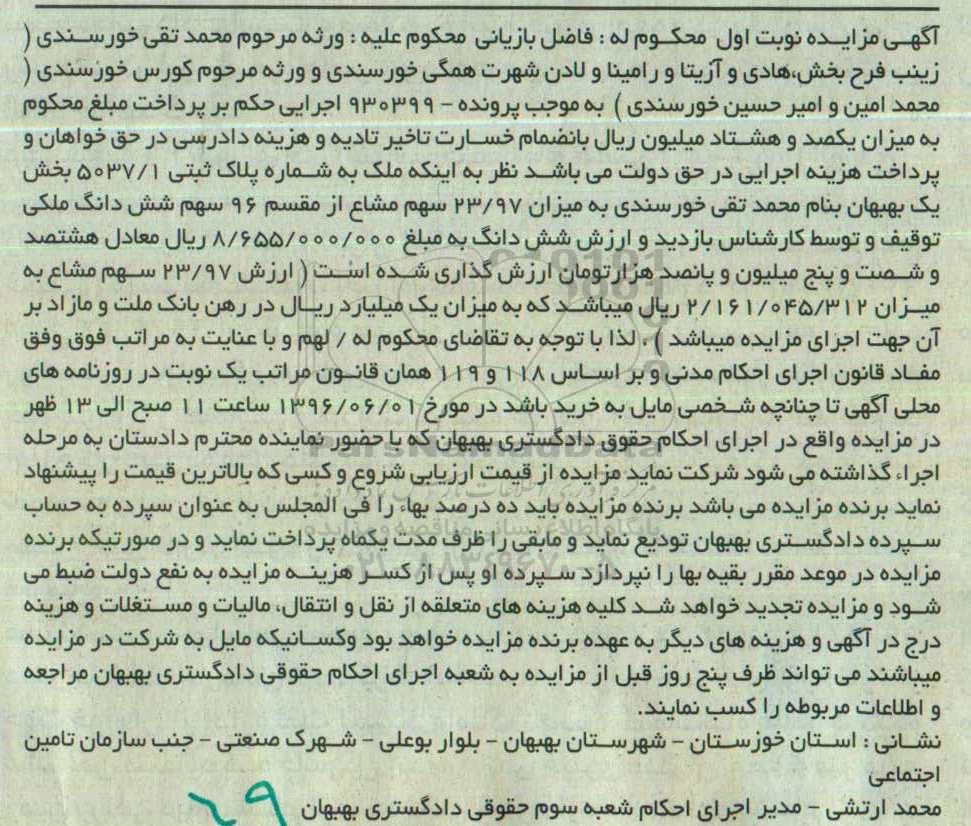 آگهی مزایده نوبت اول محکوم له : فاضل بازیانی محکوم علیه : ورثه مرحوم محمد تقی خورسندی (
زینب فرح بخش،هادی و آزیتا و رامینا و لادن شهرت همگی خورسندی و ورثه مرحوم کورس خورسندی (
محمد امین و امیر حسین خورسندی ) به موجب پرونده - ۹۳۰۳۹۹ اجرایی حکم بر پرداخت مبلغ محکوم
به میزان یکصد و هشتاد میلیون ریال بانضمام خسارت تاخیر تادیه و هزینه دادرسی در حق خواهان و
پرداخت هزینه اجرایی در حق دولت می باشد نظر به اینکه ملک به شماره پلاک ثبتی ۵۰۳۷/۱ بخش
یک بهبهان بنام محمد تقی خورسندی به میزان ۲۳/۹۷ سهم مشاع از مقسم ۹۶ سهم شش دانگ ملکی
توقیف و توسط کارشناس بازدید و ارزش شش دانگ به مبلغ ۸/۶۵۵/۰۰۰/۰۰۰ ریال معادل هشتصد
و شصت و پنج میلیون و پانصد هزارتومان ارزش گذاری شده است ( ارزش ۲۳/۹۷ سهم مشاع به
میزان ۲/۱۶۱/۰۴۵/۳۱۲ ریال میباشد که به میزان یک میلیارد ریال در رهن بانک ملت و مازاد بر
آن جهت اجرای مزایده میباشد ) ، لذا با توجه به تقاضای محکوم له / لهم و با عنایت به مراتب فوق وفق
مفاد قانون اجرای احکام مدنی و بر اساس ۱۱۸ و ۱۱۹ همان قانون مراتب یک نوبت در روزنامه های
محلی آگهی تا چنانچه شخصی مایل به خرید باشد در مورخ ۱۳۹۶/۰۶/۰۱ ساعت ۱۱ صبح الی ۱۳ ظهر
در مزایده واقع در اجرای احکام حقوق دادگستری بهبهان که با حضور نماینده محترم دادستان به مرحله
اجراء گذاشته می شود شرکت نماید مزایده از قیمت ارزیابی شروع و کسی که بالاترین قیمت را پیشنهاد
نماید برنده مزایده می باشد برنده مزایده باید ده درصد بهاء را فی المجلس به عنوان سپرده به حساب
سپرده دادگستری بهبهان تودیع نماید و مابقی را ظرف مدت یکماه پرداخت نماید و در صورتیکه برنده
مزایده در موعد مقرر بقیه بها را نپردازد سپرده او پس از کسر هزینه مزایده به نفع دولت ضبط می
شود و مزایده تجدید خواهد شد کلیه هزینه های متعلقه از نقل و انتقال، مالیات و مستغلات و هزینه
درج در آگهی و هزینه های دیگر به عهده برنده مزایده خواهد بود وکسانیکه مایل به شرکت در مزایده
میباشند می تواند ظرف پنج روز قبل از مزایده به شعبه اجرای احکام حقوقی دادگستری بهبهان مراجعه
و اطلاعات مربوطه را کسب نمایند.
نشانی : استان خوزستان - شهرستان بهبهان - بلوار بوعلی - شهرک صنعتی - جنب سازمان تامین
اجتماعی
محمد ارتشی - مدیر اجرای احکام شعبه سوم حقوقی دادگستری بهبهان